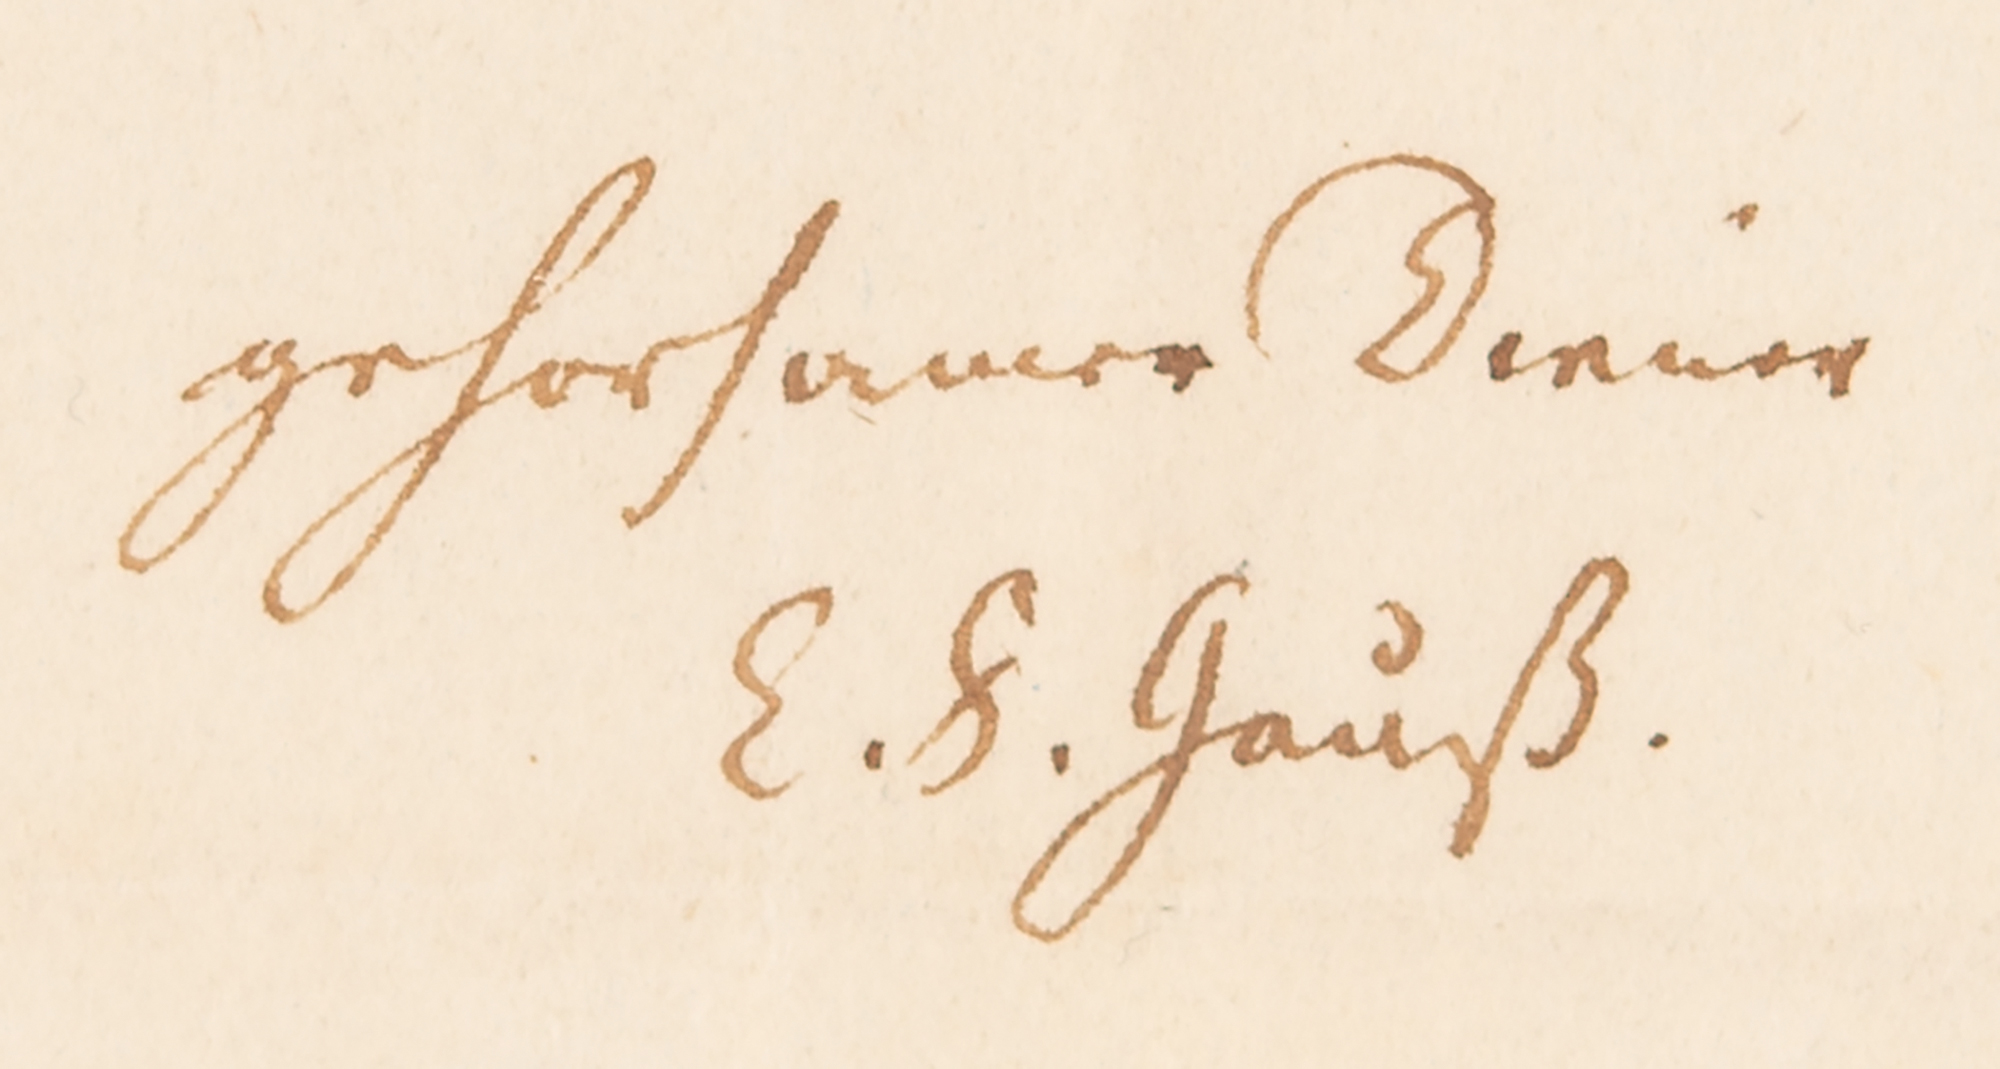 gehorsamer Diener
C. F. Gauß.